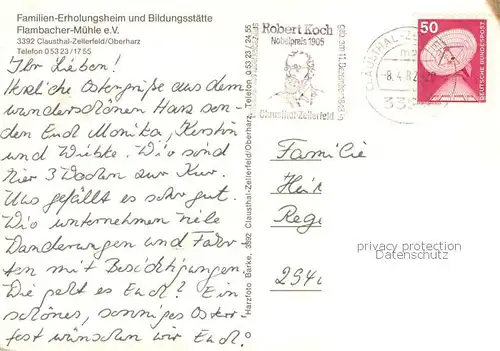 Familien-Erholungsheim und Bildungsstätte
Flambacher-Mühle e.V.
3392 Clausthal-Zellerfeld/Oberharz
Telefon 0 53 23 / 17 55
Ihr Lieben!
Herzliche Ostergrüße aus dem
wunderschönen Harz sen-
den Euch Monika, Kerstin
und Wiebke. Wir sind
hier 3 Wochen zur Kur.
Uns gefällt es sehr gut.
Wir unternehmen viele
Wanderungen und Fahr-
ten mit Besichtigungen.
Wie geht es Euch? Ein
schönes, sonniges Oster-
fest wünschen wir Euch!
Harzfoto Barke, 3392 Clausthal-Zellerfeld/Oberharz, Telefon 0 53 23 / 24 55
Robert Koch
Nobelpreis 1905
geb. am 11. Dezember 1843 in
Clausthal-Zellerfeld
CLAUSTHAL-ZELLERFELD
8.4.82
50
DEUTSCHE BUNDESPOST
Familie
Hei
Rege
294
privacy protection
VINTAGE POSTCARDS